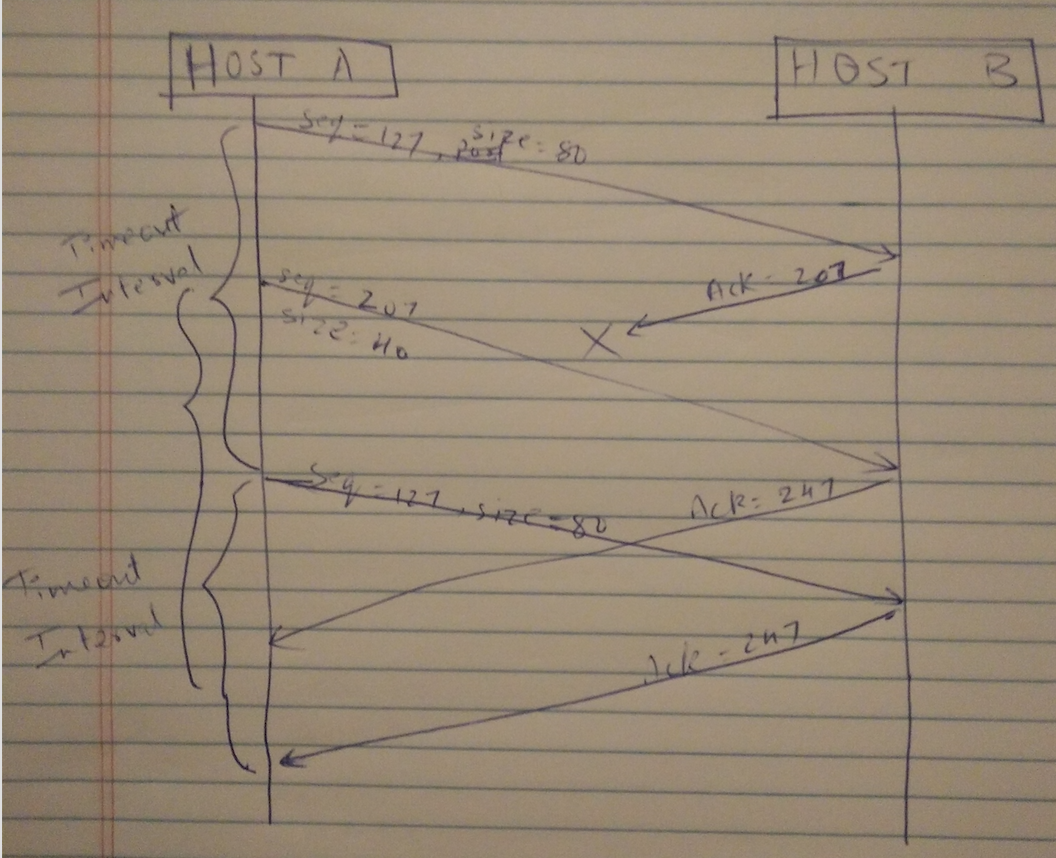 HOST A
HOST B
Seq = 127, size = 80
Timeout
Interval
Ack = 207
X
seq = 207
size = 40
Seq = 127, size = 80
Ack = 247
Timeout
Interval
Ack = 247